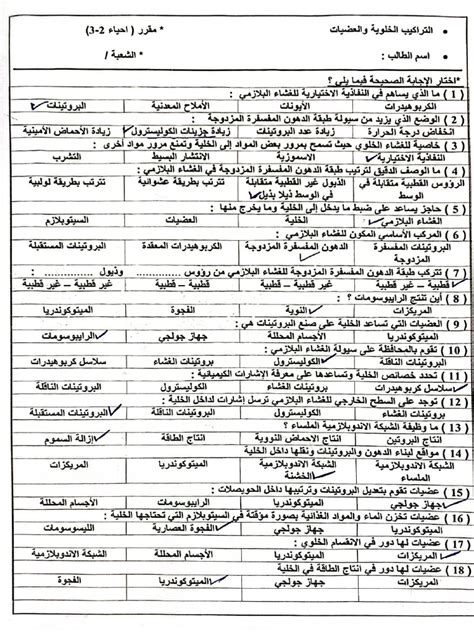 • التراكيب الخلوية والعضيات * مقرر ( احياء 2-3)
• اسم الطالب : * الشعبة /
*اختار الإجابة الصحيحة فيما يلي ؟
( 1 ) ما الذي يساهم في النفاذية الاختيارية للغشاء البلازمي :
الكربوهيدرات الأيونات الأملاح المعدنية البروتينات
( 2 ) الوضع الذي يزيد من سيولة طبقة الدهون المفسفرة المزدوجة :
انخفاض درجة الحرارة زيادة عدد البروتينات زيادة جزيئات الكوليسترول زيادة الأحماض الأمينية
( 3 ) خاصية للغشاء الخلوي حيث تسمح بمرور بعض المواد إلى الخلية وتمنع مرور مواد أخرى :
النفاذية الاختيارية الاسموزية الانتشار البسيط التشرب
( 4 ) ما الوصف الدقيق لترتيب طبقة الدهون المفسفرة المزدوجة في الغشاء البلازمي :
الرؤوس القطبية متقابلة في الوسط الذيول غير القطبية متقابلة في الوسط ذيلا بذيل تترتب بطريقة عشوائية تترتب بطريقة لولبية
( 5 ) حاجز يساعد على ضبط ما يدخل إلى الخلية وما يخرج منها :
الغشاء البلازمي الخلية العضيات السيتوبلازم
( 6 ) المركب الأساسي المكون للغشاء البلازمي :
البروتينات المفسفرة المزدوجة الدهون المفسفرة المزدوجة الكربوهيدرات المعقدة البروتينات المستقبلة
( 7 ) تتركب طبقة الدهون المفسفرة المزدوجة للغشاء البلازمي من رؤوس ............ وذيول ............ :
قطبية – غير قطبية قطبية – قطبية غير قطبية – قطبية غير قطبية – غير قطبية
( 8 ) أين تنتج الرايبوسومات ؟
المريكزات النوية الفجوة الميتوكوندريا
( 9 ) العضيات التي تساعد الخلية على صنع البروتينات هي :
الميتوكوندريا الأجسام المحللة جهاز جولجي الرايبوسومات
( 10 ) تقوم بالمحافظة على سيولة الغشاء البلازمي :
البروتينات الناقلة الكوليسترول بروتينات الغشاء سلاسل كربوهيدرات
( 11 ) تحدد خصائص الخلية وتساعدها على معرفة الإشارات الكيميائية :
سلاسل كربوهيدرات بروتينات الغشاء الكوليسترول البروتينات الناقلة
( 12 ) توجد على السطح الخارجي للغشاء البلازمي ترسل إشارات لداخل الخلية :
بروتينات الغشاء الكوليسترول البروتينات الناقلة البروتينات المستقبلة
( 13 ) ما وظيفة الشبكة الاندوبلازمية الملساء ؟
انتاج البروتين انتاج الاحماض النووية انتاج الطاقة إزالة السموم
( 14 ) مواقع لبناء الدهون والبروتينات ونقلها داخل الخلية
الشبكة الاندوبلازمية الملساء الشبكة الاندوبلازمية الخشنة الميتوكوندريا المريكزات
( 15 ) عضيات تقوم بتعديل البروتينات وترتيبها داخل الحويصلات :
جهاز جولجي الميتوكوندريا الرايبوسومات الأجسام المحللة
( 16 ) عضيات تخزن الماء والمواد الغذائية بصورة مؤقتة في السيتوبلازم التي تحتاجها الخلية :
الميتوكوندريا جهاز جولجي الفجوة العصارية الليسوسومات
( 17 ) عضيات لها دور في الانقسام الخلوي :
المريكزات الميتوكوندريا الأجسام المحللة الشبكة الاندوبلازمية
( 18 ) عضيات لها دور في انتاج الطاقة في الخلية
المريكزات جهاز جولجي الميتوكوندريا الفجوة